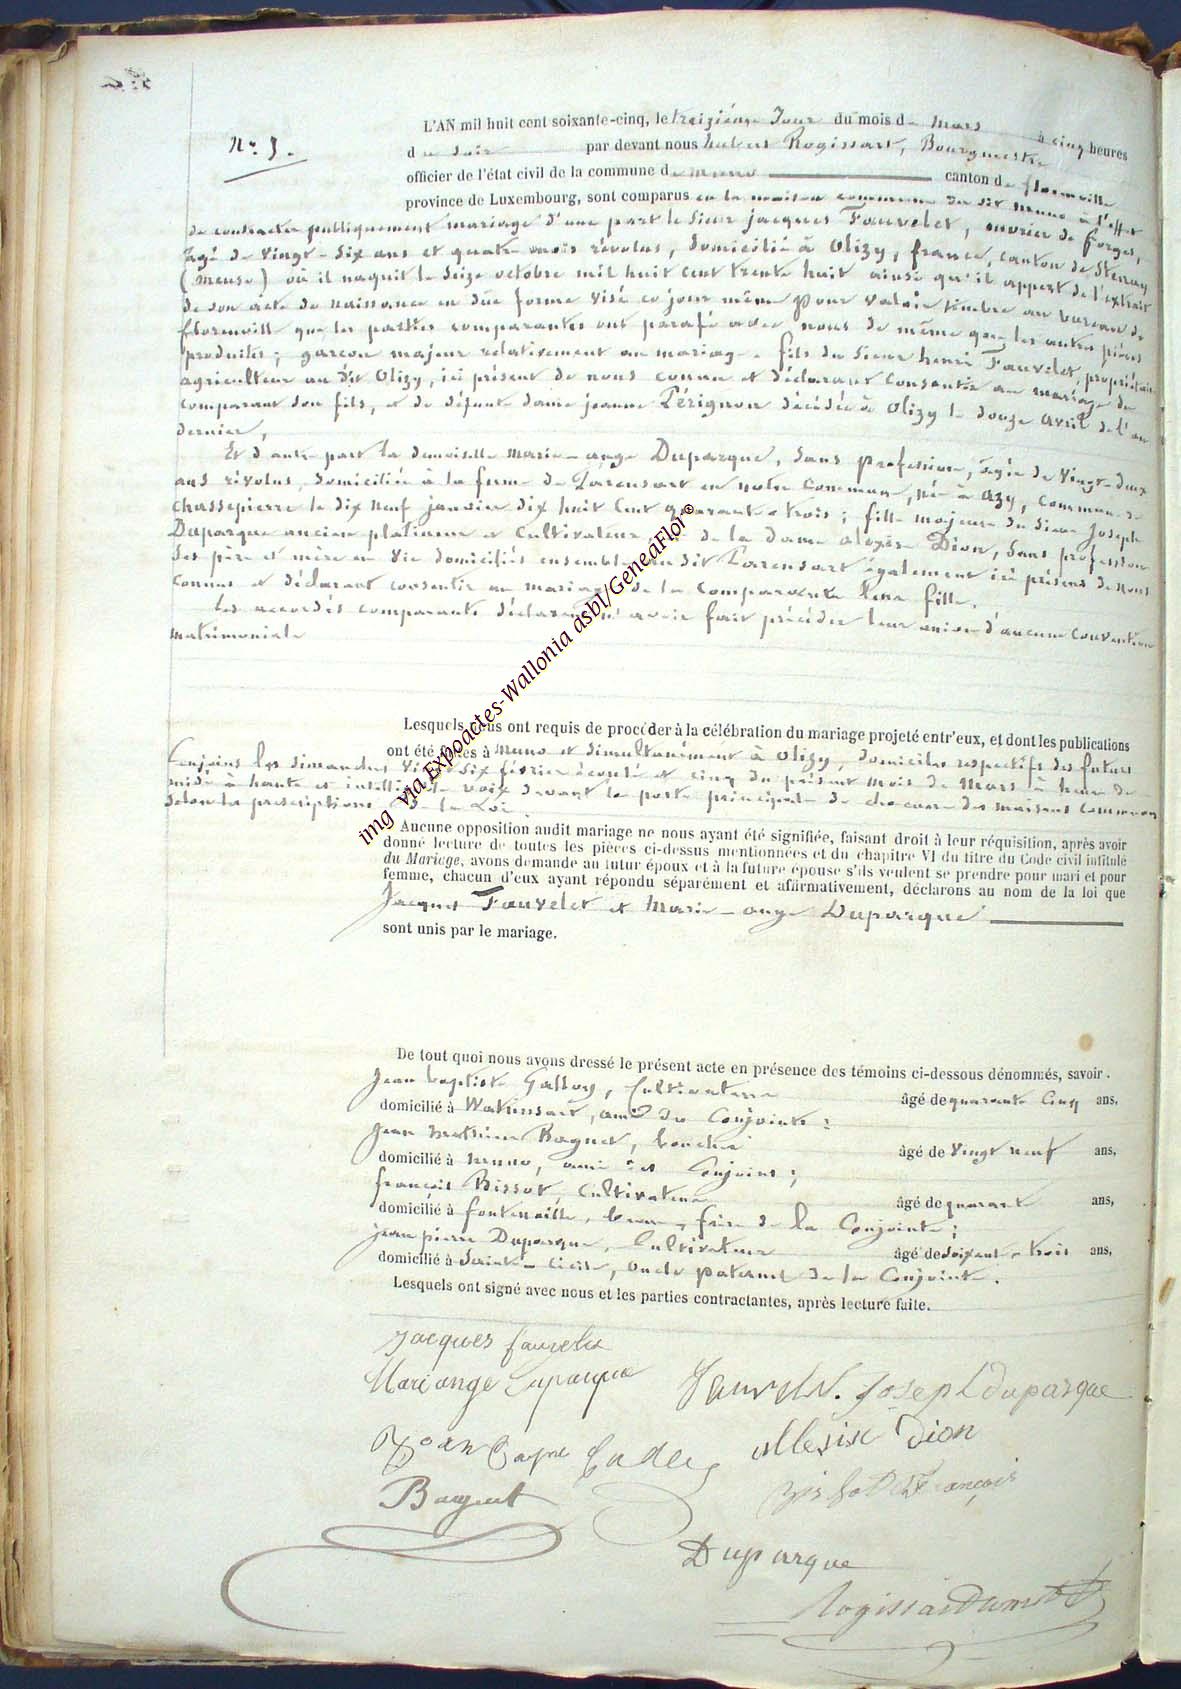 N° 5.
L'AN mil huit cent soixante-cinq, le treizième Jour du mois de Mars à cinq heures
du Soir par devant nous hubert Rogissart, Bourgmestre
officier de l'état civil de la commune de Muno canton de florenville
province de Luxembourg, sont comparus en la maison commune du dit Muno à l'effet
de contracter publiquement mariage d'une part le Sieur jacques Fauvelet, ouvrier de forges,
âgé de Vingt-Six ans et quatre mois révolus, domicilié à Olizy, france, canton de Stenay
(Meuse) où il naquit le Seize octobre mil huit Cent trente huit ainsi qu'il appert de l'extrait
de son acte de naissance en due forme visé ce jour même pour valoir timbre au bureau de
florenville que les parties comparantes ont parafé avec nous de même que les autres pièces
produites ; garçon majeur relativement au mariage fils du Sieur henri Fauvelet, propriétaire
agriculteur au dit Olizy, ici présent de nous connu et déclarant Consentir au mariage du
comparant son fils, et de défunte dame jeanne Pérignon décédée à Olizy le douze Avril de l'an
dernier,
Et d'autre part la demoiselle Marie-ange Duparque, Sans profession, âgée de Vingt-deux
ans révolus, domiciliée à la ferme de Larensart en notre Commune, Née à Azy, Commune de
Chassepierre le dix Neuf janvier dix huit Cent quarante trois ; fille majeure du Sieur Joseph
Duparque ancien platineur et Cultivateur, et de la dame alexise Dion, Sans profession
Ses père et mère en Vie domiciliés ensemble au dit Larensart également ici présens de nous
connus et déclarant consentir au mariage de la Comparante leur fille.
Les accordés comparants déclarent n'avoir fait précéder leur union d'aucune Convention
matrimoniale
Lesquels nous ont requis de procéder à la célébration du mariage projeté entr'eux, et dont les publications
ont été faites à Muno et Simultanément à Olizy, domiciles respectifs des futurs
Conjoins les dimanches Vingt Six février écoulé et cinq du présent mois de Mars à heure de
midi à haute et intelligible voix devant la porte principale de chacune des maisons Communes
Selon les prescriptions de la Loi
Aucune opposition audit mariage ne nous ayant été signifiée, faisant droit à leur réquisition, après avoir
donné lecture de toutes les pièces ci-dessus mentionnées et du chapitre VI du titre du Code civil intitulé
du Mariage, avons demandé au futur époux et à la future épouse s'ils veulent se prendre pour mari et pour
femme, chacun d'eux ayant répondu séparément et affirmativement, déclarons au nom de la loi que
Jacques Fauvelet et Marie-ange Duparque
sont unis par le mariage.
De tout quoi nous avons dressé le présent acte en présence des témoins ci-dessous dénommés, savoir.
Jean baptiste, Cultivateur âgé de quarante Cinq ans,
domicilié à Watrinsart, ami du Conjointe ;
Jean Baguet, boucher âgé de Vingt neuf ans,
domicilié à Muno, ami des Conjoins ;
françois Bissot, Cultivateur âgé de quarante ans,
domicilié à fontenoille, beau-frère de la Conjointe ;
jean pierre Duparque, Cultivateur âgé de Soixante trois ans,
domicilié à Sainte-Cécile, Oncle paternel de la Conjointe.
Lesquels ont signé avec nous et les parties contractantes, après lecture faite.
Jacques fauvelet
Mari ange Duparque Fauvelet. Joseph duparque
Allexise Dion
Baguet Bissot François
Duparque
Rogissart
img via Expoactes-Wallonia asbl/GeneaFlor©